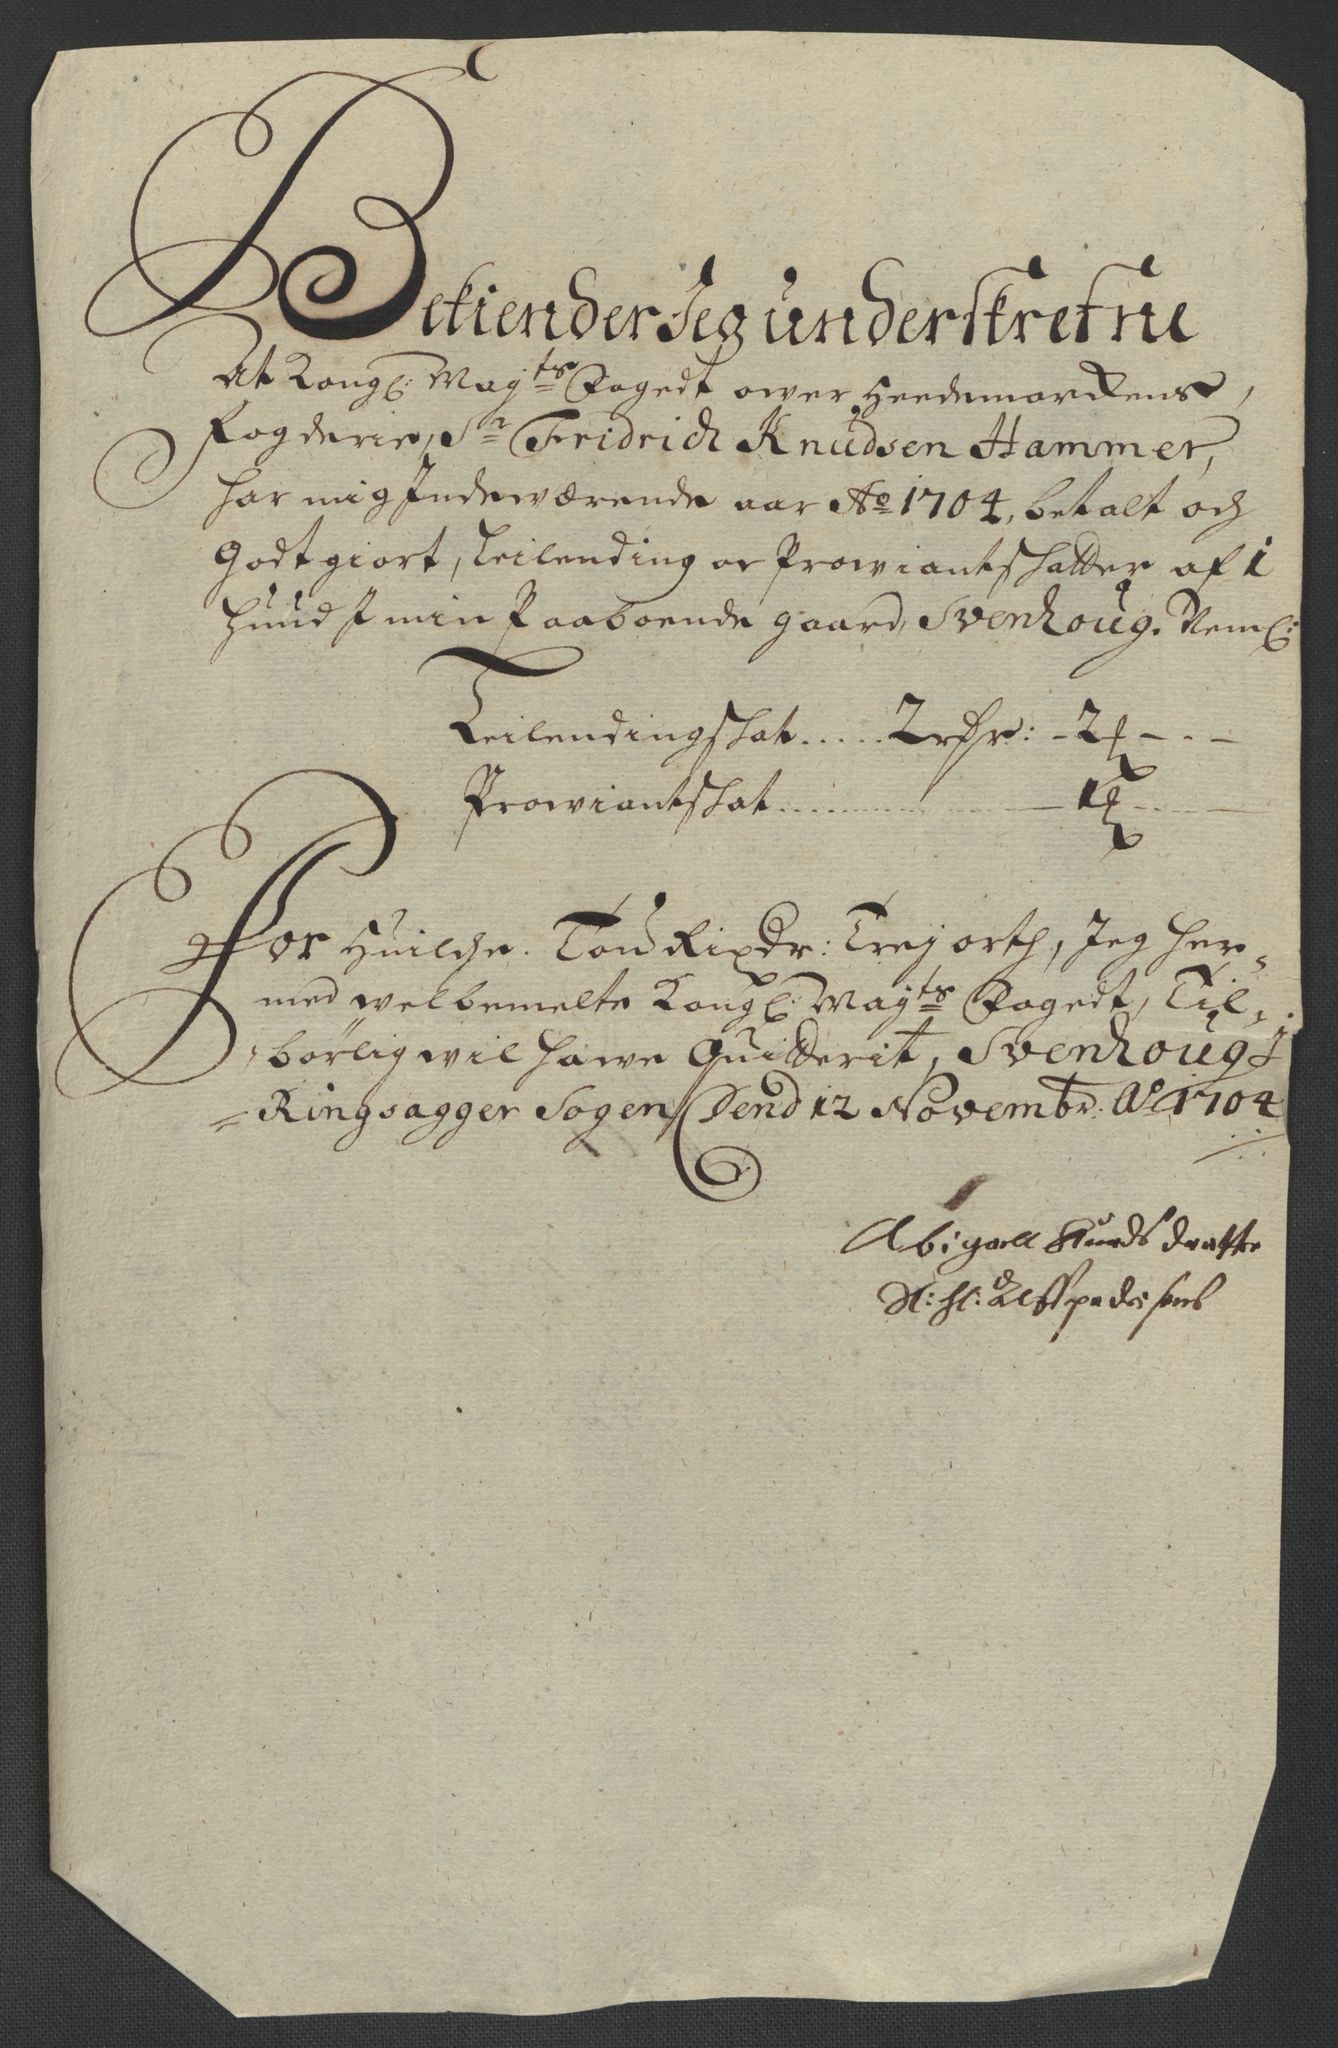 Bekiender Jeg underskrefne
At Kongl: May:ts Fogedt ower Heedemarckens,
Fogderie, Sr Fridrich Knudsen Hammer,
har mig Indewærende aar Ao 1704, betalt och
Godtgiort, Leilending oc Prowiantschatter af 1
huud I min Paaboende gaard, Svenhoug. Neml:
Leilendingschat ..... 2 rdr: - 2 ß - . -
Prowiantschat .......... 1 ß
For Huilche. Tou Rixdr: Trej orth, Jeg her-
med welbemelte Kongl: May:ts Fogedt, Til-
börlig wil hawe Quitterit, Svenhoug I
Ringsagger Sogen, Dend 12 Novembr: Ao 1704
Abigaell Knuds datter